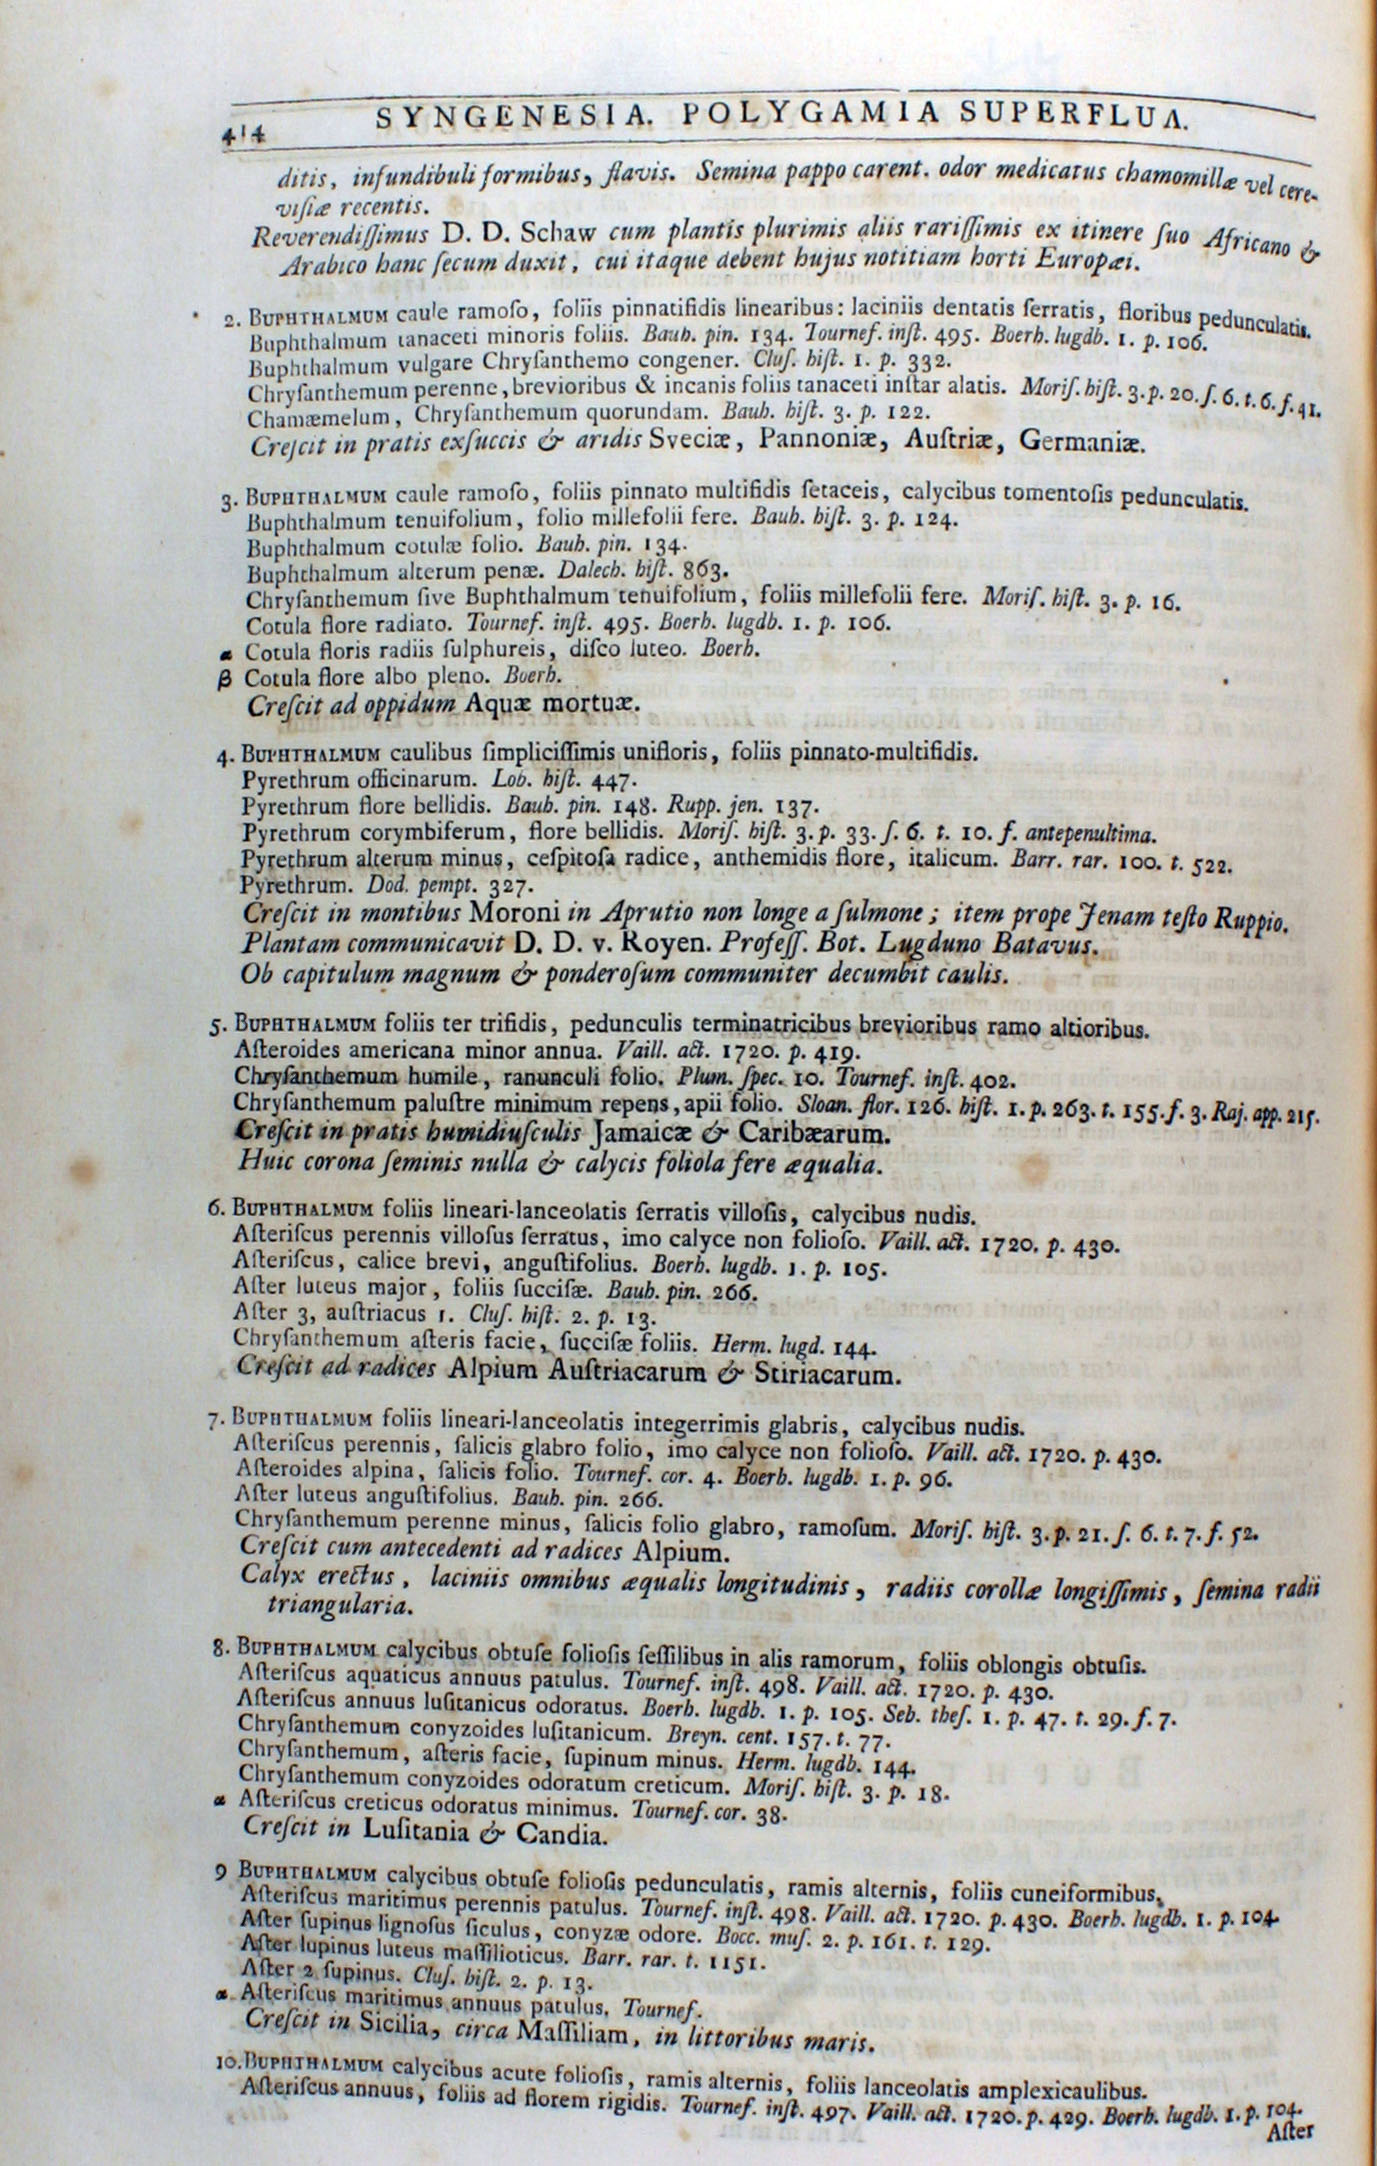 414 SYNGENESIA. POLYGAMIA SUPERFLUA.
ditis, infundibuliformibus, flavis. Semina pappo carent. odor medicatus chamomillæ vel cere-
viſiæ recentis.
Reverendiſſimus D. D. Schaw cum plantis plurimis aliis rariſſimis ex itinere ſuo Africano &
Arabico hanc ſecum duxit, cui itaque debent hujus notitiam horti Europæi.
2. BUPHTHALMUM caule ramoſo, foliis pinnatifidis linearibus: laciniis dentatis ſerratis, floribus pedunculatis.
Buphthalmum tanaceti minoris foliis. Bauh. pin. 134. Tournef. inſt. 495. Boerh. lugdb. 1. p. 106.
Buphthalmum vulgare Chryſanthemo congener. Cluſ. hiſt. 1. p. 332.
Chryſanthemum perenne, brevioribus & incanis foliis tanaceti inſtar alatis. Moriſ. hiſt. 3. p. 20. ſ. 6. t. 6. f. 41.
Chamæmelum, Chryſanthemum quorundam. Bauh. hiſt. 3. p. 122.
Creſcit in pratis exſuccis & aridis Sveciæ, Pannoniæ, Auſtriæ, Germaniæ.
3. BUPHTHALMUM caule ramoſo, foliis pinnato multifidis ſetaceis, calycibus tomentoſis pedunculatis.
Buphthalmum tenuifolium, folio millefolii fere. Bauh. hiſt. 3. p. 124.
Buphthalmum cotulæ folio. Bauh. pin. 134.
Buphthalmum alterum penæ. Dalech. hiſt. 863.
Chryſanthemum ſive Buphthalmum tenuifolium, foliis millefolii fere. Moriſ. hiſt. 3. p. 16.
Cotula flore radiato. Tournef. inſt. 495. Boerh. lugdb. 1. p. 106.
α Cotula floris radiis ſulphureis, diſco luteo. Boerh.
β Cotula flore albo pleno. Boerh.
Creſcit ad oppidum Aquæ mortuæ.
4. BUPHTHALMUM caulibus ſimpliciſſimis unifloris, foliis pinnato-multifidis.
Pyrethrum officinarum. Lob. hiſt. 447.
Pyrethrum flore bellidis. Bauh. pin. 148. Rupp. jen. 137.
Pyrethrum corymbiferum, flore bellidis. Moriſ. hiſt. 3. p. 33. ſ. 6. t. 10. f. antepenultima.
Pyrethrum alterum minus, ceſpitoſa radice, anthemidis flore, italicum. Barr. rar. 100. t. 522.
Pyrethrum. Dod. pempt. 327.
Creſcit in montibus Moroni in Aprutio non longe a ſulmone; item prope Jenam teſto Ruppio.
Plantam communicavit D. D. v. Royen. Profeſſ. Bot. Lugduno Batavus.
Ob capitulum magnum & ponderoſum communiter decumbit caulis.
5. BUPHTHALMUM foliis ter trifidis, pedunculis terminatricibus brevioribus ramo altioribus.
Aſteroides americana minor annua. Vaill. act. 1720. p. 419.
Chryſanthemum humile, ranunculi folio. Plum. ſpec. 10. Tournef. inſt. 402.
Chryſanthemum paluſtre minimum repens, apii folio. Sloan. flor. 126. hiſt. 1. p. 263. t. 155. f. 3. Raj. app. 215.
Creſcit in pratis humidiuſculis Jamaicæ & Caribæarum.
Huic corona ſeminis nulla & calycis foliola fere æqualia.
6. BUPHTHALMUM foliis lineari-lanceolatis ſerratis villoſis, calycibus nudis.
Aſteriſcus perennis villoſus ſerratus, imo calyce non folioſo. Vaill. act. 1720. p. 430.
Aſteriſcus, calice brevi, anguſtifolius. Boerh. lugdb. 1. p. 105.
Aſter luteus major, foliis ſucciſæ. Bauh. pin. 266.
Aſter 3, auſtriacus 1. Cluſ. hiſt. 2. p. 13.
Chryſanthemum aſteris facie, ſucciſæ foliis. Herm. lugd. 144.
Creſcit ad radices Alpium Auſtriacarum & Stiriacarum.
7. BUPHTHALMUM foliis lineari-lanceolatis integerrimis glabris, calycibus nudis.
Aſteriſcus perennis, ſalicis glabro folio, imo calyce non folioſo. Vaill. act. 1720. p. 430.
Aſteroides alpina, ſalicis folio. Tournef. cor. 4. Boerh. lugdb. 1. p. 96.
Aſter luteus anguſtifolius. Bauh. pin. 266.
Chryſanthemum perenne minus, ſalicis folio glabro, ramoſum. Moriſ. hiſt. 3. p. 21. ſ. 6. t. 7. f. 52.
Creſcit cum antecedenti ad radices Alpium.
Calyx erectus, laciniis omnibus æqualis longitudinis, radiis corollæ longiſſimis, ſemina radii
triangularia.
8. BUPHTHALMUM calycibus obtuſe folioſis ſeſſilibus in alis ramorum, foliis oblongis obtuſis.
Aſteriſcus aquaticus annuus patulus. Tournef. inſt. 498. Vaill. act. 1720. p. 430.
Aſteriſcus annuus luſitanicus odoratus. Boerh. lugdb. 1. p. 105. Seb. theſ. 1. p. 47. t. 29. f. 7.
Chryſanthemum conyzoides luſitanicum. Breyn. cent. 157. t. 77.
Chryſanthemum, aſteris facie, ſupinum minus. Herm. lugdb. 144.
Chryſanthemum conyzoides odoratum creticum. Moriſ. hiſt. 3. p. 18.
α Aſteriſcus creticus odoratus minimus. Tournef. cor. 38.
Creſcit in Luſitania & Candia.
9 BUPHTHALMUM calycibus obtuſe folioſis pedunculatis, ramis alternis, foliis cuneiformibus.
Aſteriſcus maritimus perennis patulus. Tournef. inſt. 498. Vaill. act. 1720. p. 430. Boerh. lugdb. 1. p. 104.
Aſter ſupinus lignoſus ſiculus, conyzæ odore. Bocc. muſ. 2. p. 161. t. 129.
Aſter lupinus luteus maſſilioticus. Barr. rar. t. 1151.
Aſter 2 ſupinus. Cluſ. hiſt. 2. p. 13.
α Aſteriſcus maritimus annuus patulus. Tournef.
Creſcit in Sicilia, circa Maſſiliam, in littoribus maris.
10. BUPHTHALMUM calycibus acute folioſis, ramis alternis, foliis lanceolatis amplexicaulibus.
Aſteriſcus annuus, foliis ad florem rigidis. Tournef. inſt. 497. Vaill. act. 1720. p. 429. Boerh. lugdb. 1. p. 104.
Aſter